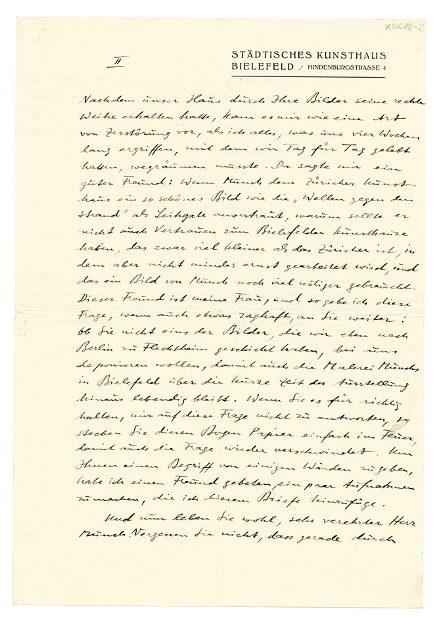 K3688-2
II
STÄDTISCHES KUNSTHAUS
BIELEFELD / HINDENBURGSTRASSE 4
Nachdem unser Haus durch Ihre Bilder seine rechte
Weihe erhalten hatte, kam es mir wie eine Art
von Zerstörung vor, als ich alles, was uns vier Wochen
lang ergriffen, mit dem wir Tag für Tag gelebt
hatten, wegräumen musste. Da sagte mir ein
guter Freund: Wenn Munch dem Züricher Kunst-
haus ein so schönes Bild wie die „Wellen gegen den
Strand" als Leihgabe anvertraut, warum sollte er
nicht auch Vertrauen zum Bielefelder Kunsthause
haben, das zwar viel kleiner als das Züricher ist, in
dem aber nicht minder ernst gearbeitet wird, und
das ein Bild von Munch noch viel nötiger gebraucht.
Dieser Freund ist meine Frau, und so gebe ich diese
Frage, wenn auch etwas zaghaft, an Sie weiter:
Ob Sie nicht eins der Bilder, die wir eben nach
Berlin zu Flechtheim geschickt haben, bei uns
deponieren wollen, damit auch die Malerei Munchs
in Bielefeld über die kurze Zeit der Ausstellung
hinaus lebendig bleibt. Wenn Sie es für richtig
halten, mir auf diese Frage nicht zu antworten, so
stecken Sie diesen Bogen Papier einfach ins Feuer,
damit auch die Frage wieder verschwindet. Um
Ihnen einen Begriff von einigen Wänden zu geben,
habe ich einen Freund gebeten, ein paar Aufnahmen
zu machen, die ich diesem Briefe hinzufüge.
Und nun leben Sie wohl, sehr verehrter Herr
Munch. Vergessen Sie nicht, dass gerade durch